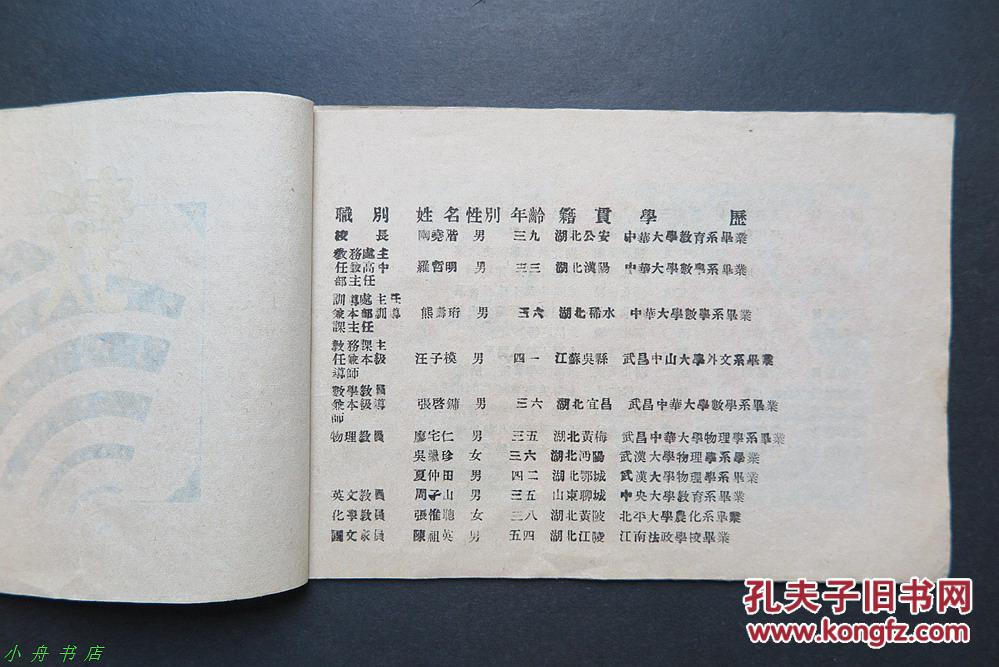 職別 姓名 性別 年齡 籍貫 學歷
校長 陶堯階 男 三九 湖北公安 中華大學教育系畢業
教務處主
任兼高中 羅哲明 男 三三 湖北漢陽 中華大學數學系畢業
部主任
訓導處主任
兼本部訓導 熊壽珩 男 三六 湖北浠水 中華大學數學系畢業
課主任
教務課主
任兼本級 汪子模 男 四一 江蘇吳縣 武昌中山大學外文系畢業
導師
數學教員
兼本級導 張啓鏞 男 三六 湖北宜昌 武昌中華大學數學系畢業
師
物理教員 廖宅仁 男 三五 湖北黃梅 武昌中華大學物理學系畢業
吳珍 女 三六 湖北沔陽 武漢大學物理學系畢業
夏仲田 男 四二 湖北鄂城 武漢大學物理學系畢業
英文教員 周子山 男 三五 山東聊城 中央大學教育系畢業
化學教員 張惟聰 女 三八 湖北黃陂 北平大學農化系畢業
國文教員 陳祖英 男 五四 湖北江陵 江南法政學校畢業
孔夫子旧书网
www.kongfz.com
小舟书店